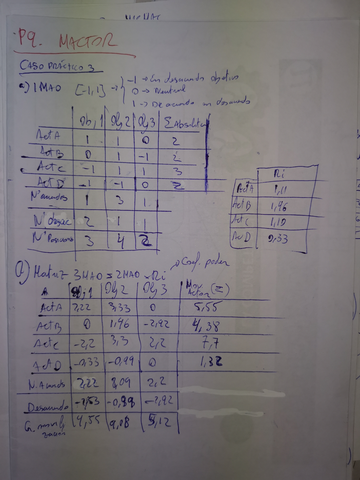 P9. MACTOR
CASO PRÁCTICO 3
a) 1MAO [-1,1] → -1 → En desacuerdo objetivo
0 → Neutral
1 → De acuerdo
Obj1 Obj2 Obj3 Σ Absoluta
Act A 1 1 0 2
Act B 0 1 -1 2
Act C -1 1 1 3
Act D -1 -1 0 2
Nº acuerdos 1 3 1
Nº desac 2 1 1
Nº Posiciones 3 4 2
Ri
Act A 1,11
Act B 1,96
Act C 1,10
Act D 0,33
Matriz 3MAO = 2MAO × Ri → Coef. poder
Obj1 Obj2 Obj3 Mov Actor (Σ)
Act A 2,22 3,33 0 5,55
Act B 0 1,96 -2,92 4,38
Act C -2,2 3,3 2,2 7,7
Act D -0,33 -0,99 0 1,32
N. Acuerdos 2,22 8,09 2,2
Desacuerdo -2,53 -0,99 -2,92
G. movilización 4,55 9,08 5,12